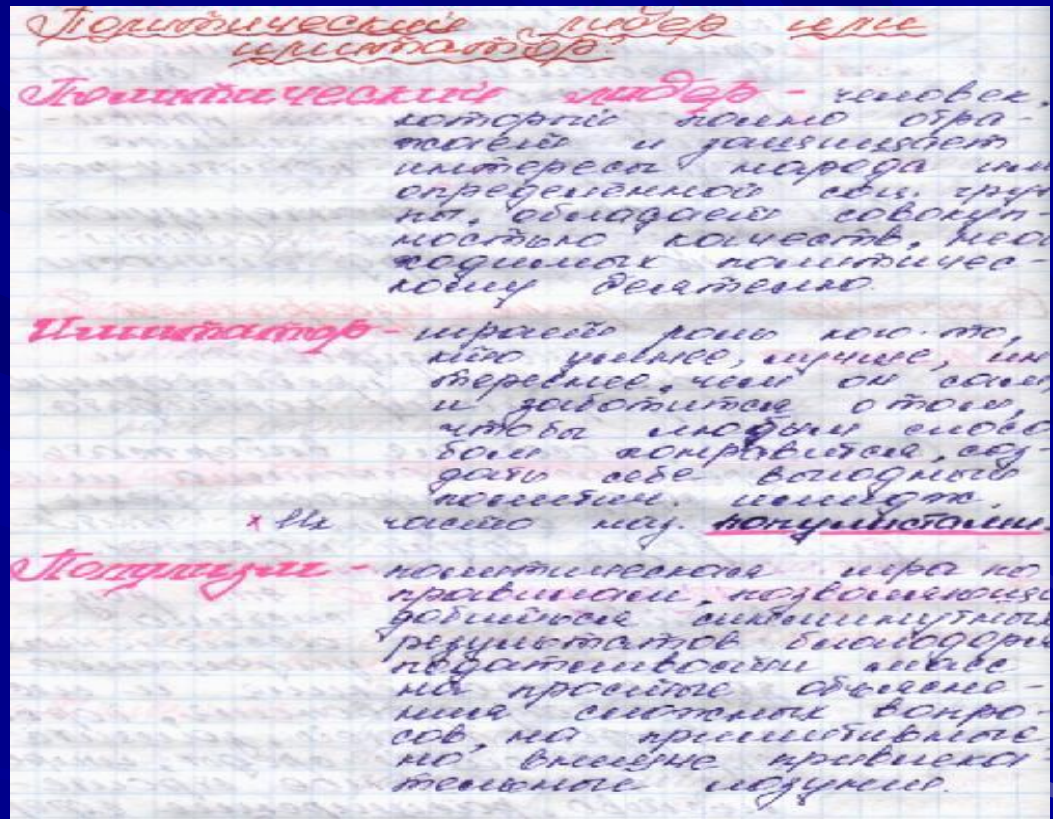 Политический лидер или
имитатор?
Политический лидер - человек,
который полно отра-
жает и защищает
интересы народа или
определённой соц. груп
пы, обладает совокуп-
ностью качеств, необ
ходимых политичес-
кому деятелю.
Имитатор - играет роль кого-то,
кто умнее, лучше, ин
тереснее, чем он сам,
и заботится о том,
чтобы любым спосо
бом понравится, соз-
дать себе выгодный
политич. имидж.
х Их часто наз. популистами.
Популизм - политическая игра по
правилам, позволяющая
добиться сиюминутных
результатов благодаря
податливости масс
на простые объясне-
ния сложных вопро-
сов, на примитивные,
но внешне привлека-
тельные лозунги.